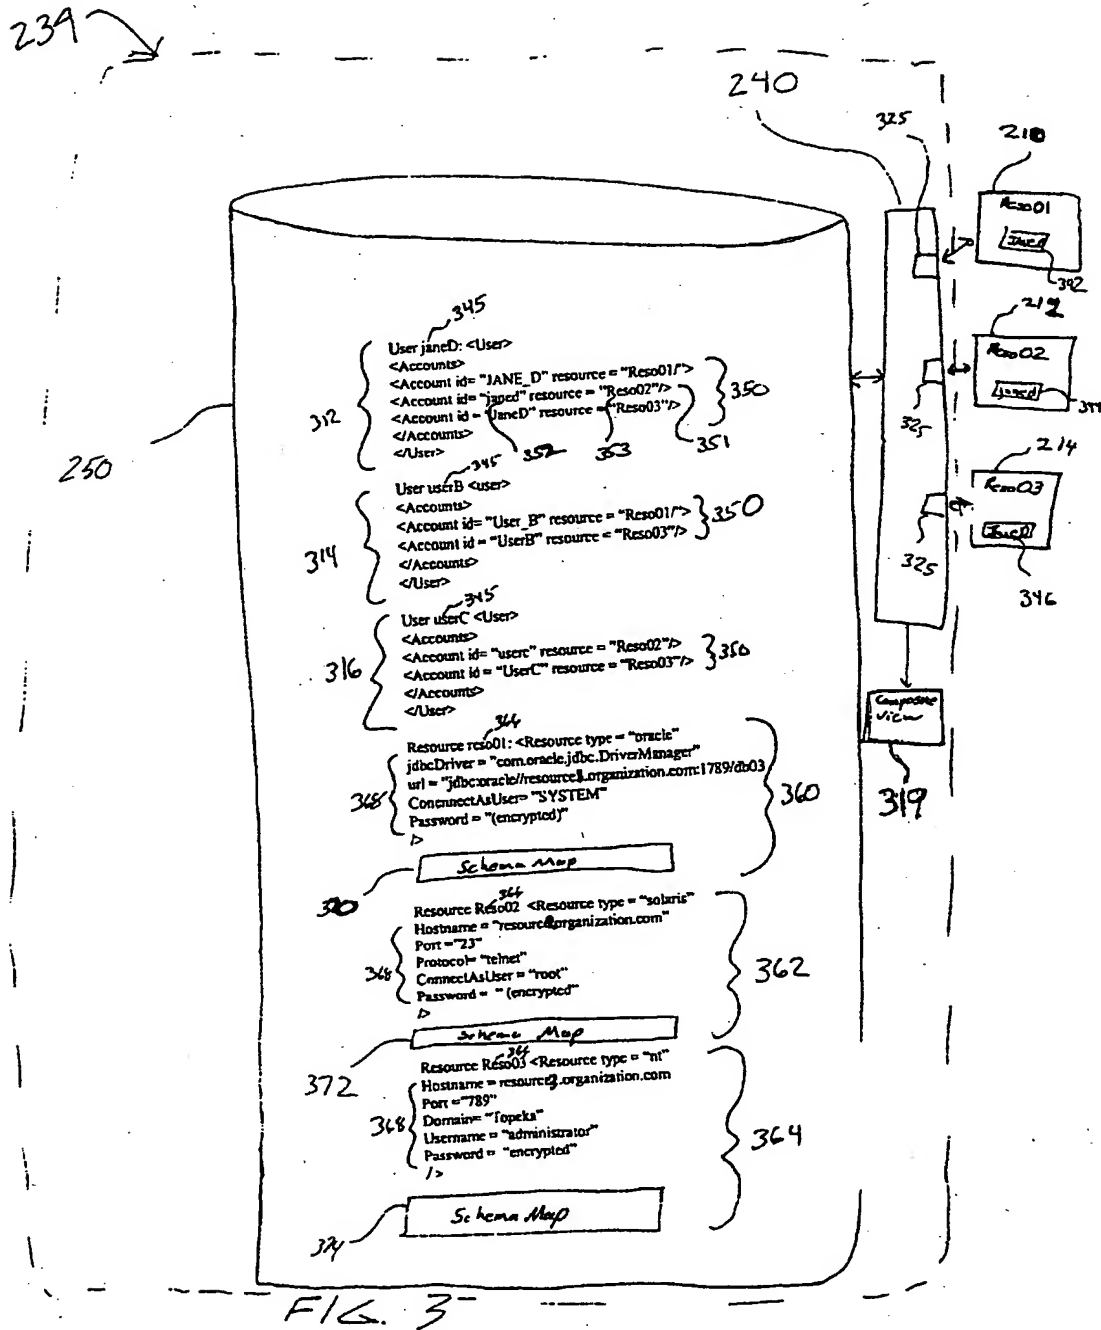 239
240
325
210
Reso01
JaneD
342
345
User janeD: <User>
<Accounts>
<Account id= "JANE_D" resource = "Reso01/">
<Account id= "janed" resource = "Reso02"/>
<Account id = "JaneD" resource = "Reso03"/>
</Accounts>
</User>
312
350
352
353
351
212
Reso02
janed
344
325
250
345
User userB <user>
<Accounts>
<Account id= "User_B" resource = "Reso01/">
<Account id = "UserB" resource = "Reso03"/>
</Accounts>
</User>
314
350
214
Reso03
JaneD
325
346
345
User userC <User>
<Accounts>
<Account id= "userc" resource = "Reso02"/>
<Account id = "UserC" resource = "Reso03"/>
</Accounts>
</User>
316
350
Composite
View
319
366
Resource reso01: <Resource type = "oracle"
jdbcDriver = "com.oracle.jdbc.DriverManager"
url = "jdbc:oracle//resource1.organization.com:1789/db03
ConennectAsUser= "SYSTEM"
Password = "(encrypted)"
/>
368
360
Schema Map
366
Resource Reso02 <Resource type = "solaris"
Hostname = "resource organization.com"
Port ="23"
Protocol= "telnet"
ConnectAsUser = "root"
Password = " (encrypted"
/>
368
362
Schema Map
372
366
Resource Reso03 <Resource type = "nt"
Hostname = resource3.organization.com
Port ="789"
Domain= "Topeka"
Username = "administrator"
Password = "encrypted"
/>
368
364
Schema Map
374
FIG. 3